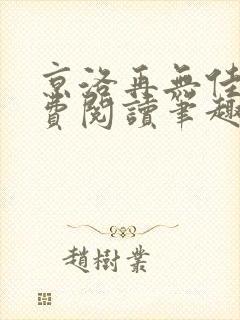 京洛再無佳
費閱讀筆趣
趙樹業